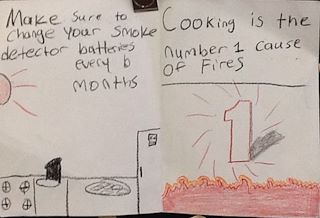 Make sure to
change your smoke
detector batteries
every 6
months
Cooking is the
number 1 cause
of Fires
1